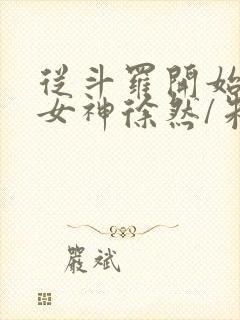 從斗羅開始
女神徐然/
嚴斌